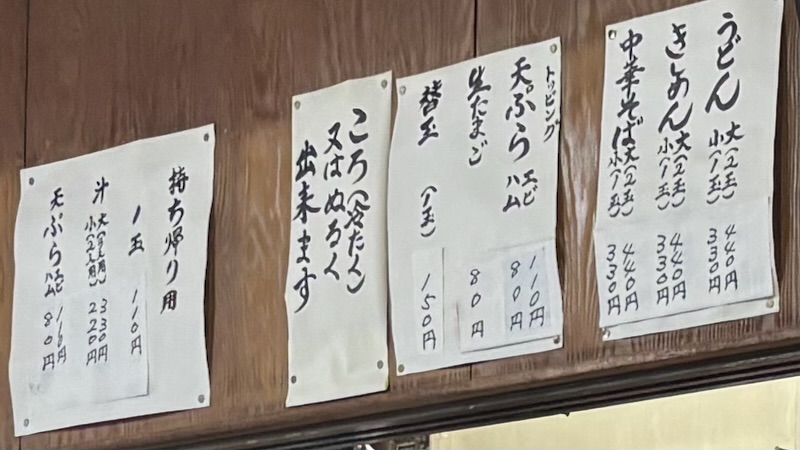 うどん 大(2玉) 440円
小(1玉) 330円
きしめん 大(2玉) 440円
小(1玉) 330円
中華そば 大(2玉) 440円
小(1玉) 330円
トッピング
天ぷら エビ 110円
ハム 80円
生たまご 80円
替玉 (1玉) 150円
ころ(冷たく)
又はぬるく
出来ます
持ち帰り用
1玉 110円
汁 大 330円
小 220円
天ぷら エビ 110円
ハム 80円